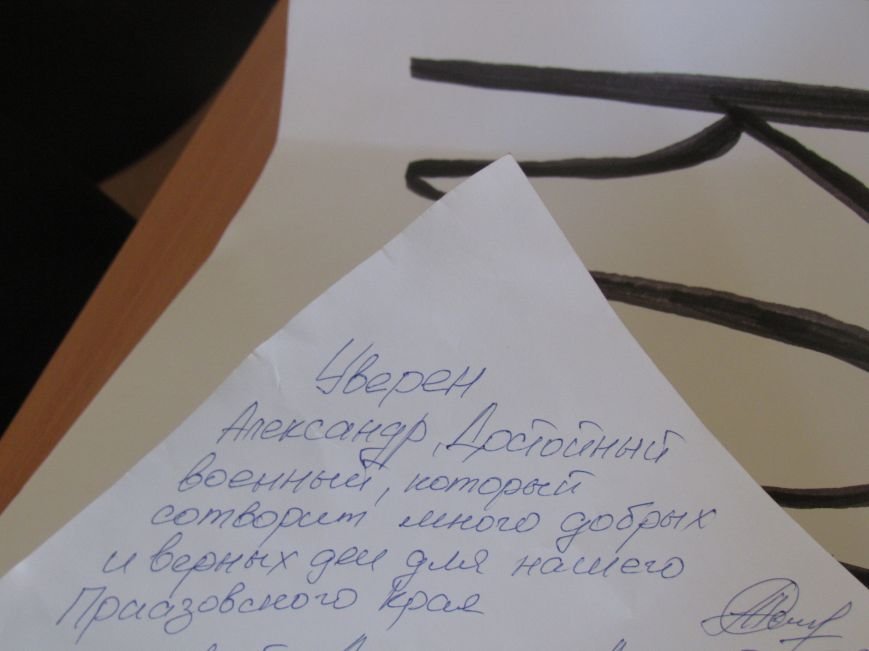 Уверен
Александр, Достойный
военный, который
сотворит много добрых
и верных дел для нашего
Приазовского края